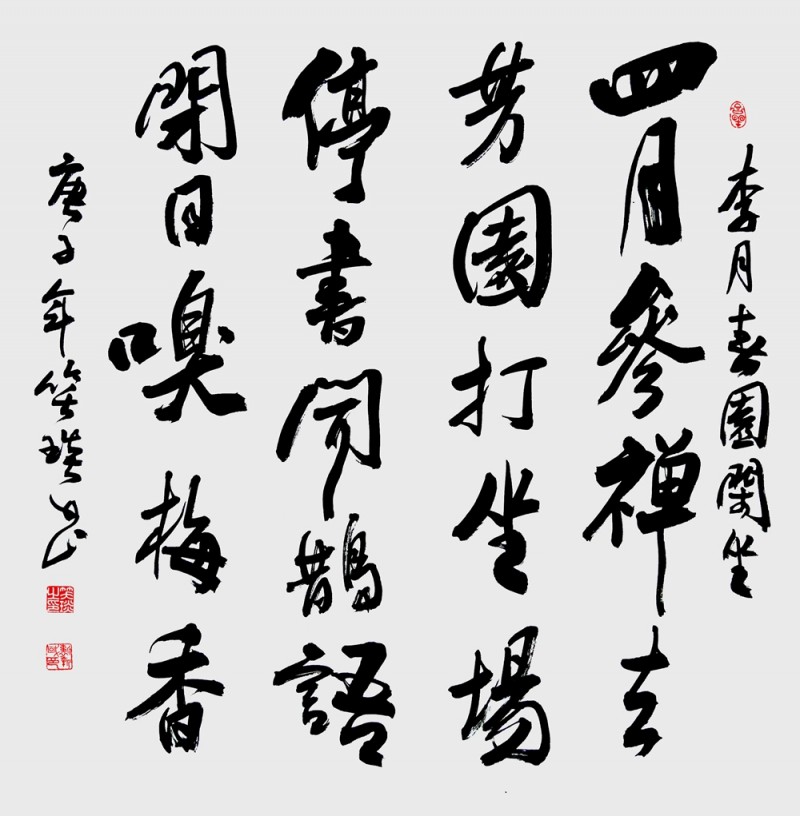 李月園坐
四月參禪去
芳園打坐場
停書聞鵲語
閉目嗅梅香
庚子年